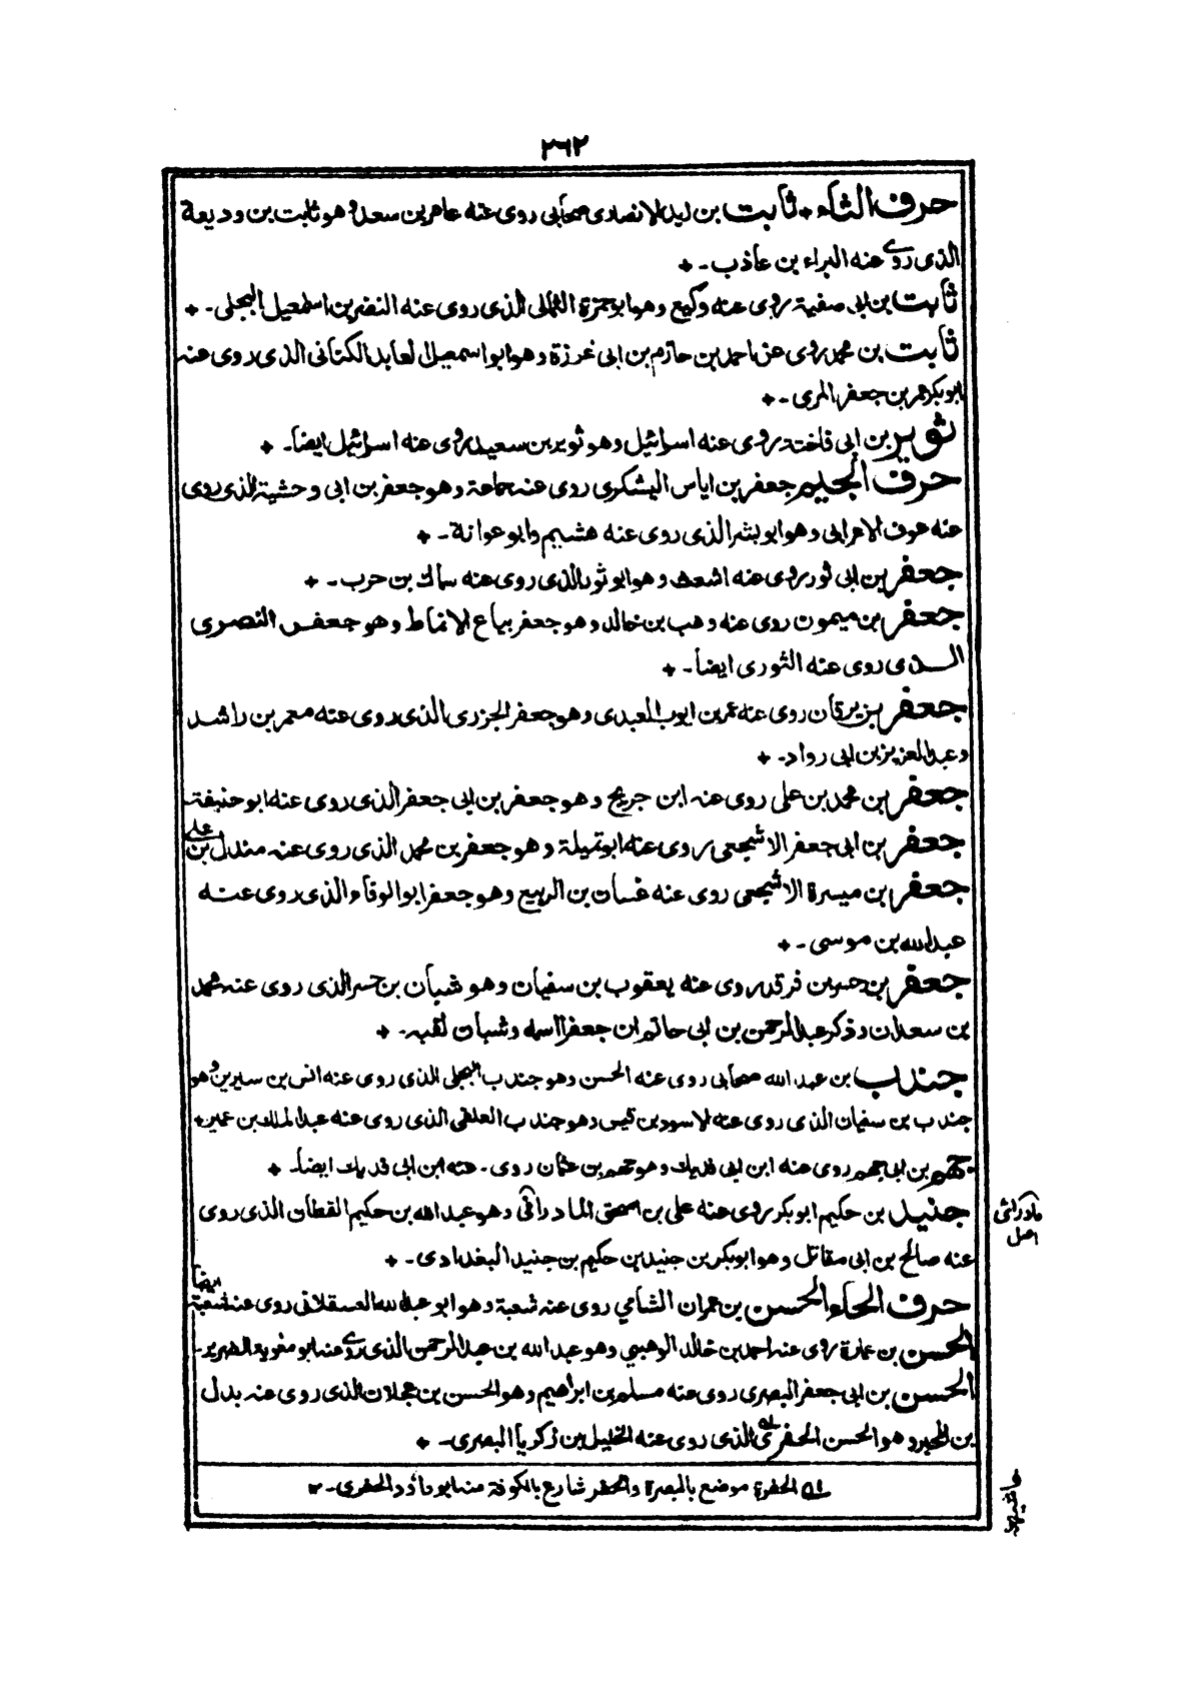 ٢٦٢
حرف الثاء ٭ ثابت بن زيد الانصارى صحابى روى عنه عامر بن سعد وهو ثابت بن وديعة
الذى روى عنه البراء بن عاذب ـ ٭
ثابت بن ابى صفية روى عنه وكيع وهو ابو حمزة الثمالى الذى روى عنه النضر بن اسمعيل البجلى ـ ٭
ثابت بن محمد روى عنه احمد بن حازم بن ابى غرزة وهو ابو اسمعيل العابد الكنانى الذى روى عنه
ابو بكر عمر بن جعفر المرى ـ ٭
ثوير بن ابى فاختة روى عنه اسرائيل وهو ثوير بن سعيد روى عنه اسرائيل ايضاً ـ ٭
حرف الجيم جعفر بن اياس اليشكرى روى عنه جماعة وهو جعفر بن ابى وحشية الذى روى
عنه عوف الاعرابى وهو ابو بشر الذى روى عنه هشيم وابو عوانة ـ ٭
جعفر بن ابى ثور روى عنه اشعث وهو ابو ثور الذى روى عنه سماك بن حرب ـ ٭
جعفر بن ميمون روى عنه وهب بن خالد وهو جعفر بياع الانماط وهو جعفر النصرى
الذى روى عنه الثورى ايضاً ـ ٭
جعفر بن برقان روى عنه عمر بن ايوب العبدى وهو جعفر الجزرى الذى روى عنه معمر بن راشد
وعبد العزيز بن ابى رواد ـ ٭
جعفر بن محمد بن على روى عنه ابن جريج وهو جعفر بن ابى جعفر الذى روى عنه ابو حنيفة
جعفر بن ابى جعفر الاشجعى روى عنه ابو تميلة وهو جعفر بن محمد الذى روى عنه مندل بن على
جعفر بن ميسرة الاشجعى روى عنه غسان بن الربيع وهو جعفر ابو الوفاء الذى روى عنه
عبد الله بن موسى ـ ٭
جعفر بن جسر بن فرقد روى عنه يعقوب بن سفيان وهو شبان بن جسر الذى روى عنه محمد
بن سعدان وذكر عبد الرحمن بن ابى حاتم ان جعفرا اسمه وشبان لقبه ـ ٭
جندب بن عبد الله صحابى روى عنه الحسن وهو جندب البجلى الذى روى عنه انس بن سيرين وهو
جندب بن سفيان الذى روى عنه الاسود بن قيس وهو جندب العلقى الذى روى عنه عبد الملك بن عمير ٭
جهم بن ابى جهم روى عنه ابن ابى فديك وهو جهم بن عثمان روى ـ عنه ابن ابى فديك ايضاً ـ ٭
جنيد بن حكيم ابو بكر روى عنه على بن اسحق المادراقى وهو عبد الله بن حكيم القطان الذى روى
مادرائى
اصل
عنه صالح بن ابى مقاتل وهو ابو بكر بن جنيد بن حكيم بن جنيد البغدادى ـ ٭
حرف الحاء الحسن بن عمران الشامي روى عنه شعبة وهو ابو عبد الله العسقلانى روى عنه شعبة ايضاً
الحسن بن عمارة روى عنه احمد بن خالد الوهبي وهو عبد الله بن عبد الرحمن الذى روى عنه ابو مغوية الضرير ـ
الحسن بن ابى جعفر البصرى روى عنه مسلم بن ابراهيم وهو الحسن بن عجلان الذى روى عنه بدل
بن المحبر وهو الحسن الحفرى الذى روى عنه الخليل بن زكريا البصرى ـ ٭
الحفرة موضع بالبصرة والحفر شارع بالكوفة منه ابو داؤد الحفرى ـ ٣
حاشيه